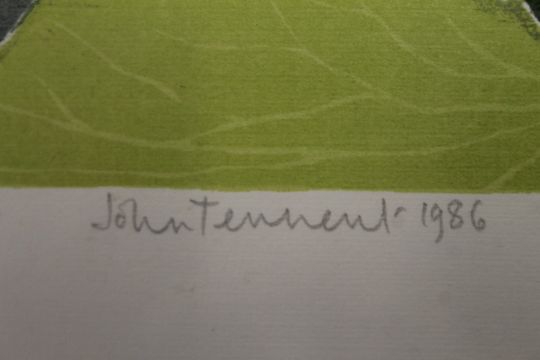 John Tennent 1986